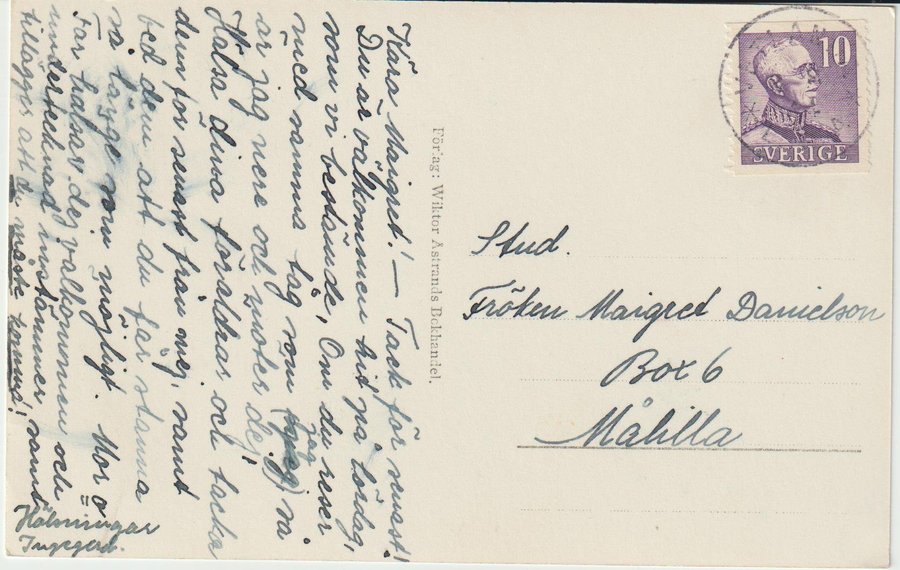 Kära Maigret! — Tack för senast!
Du är välkommen hit på lördag,
som vi bestämde, Om du reser
med samma tåg som (jag) så
jag
är jag nere och möter dej!
Hälsa dina föräldrar och tacka
dem för senast från mej, samt
bed dem att du får stanna
så länge som möjligt. Mor o
Far hälsar dej välkommen och
undertecknad instämmer, samt
tillägger att du måste komma!
Hälsningar
Ingegerd.
Förlag: Wiktor Åstrands Bokhandel.
10
SVERIGE
Stud.
Fröken Maigret Danielson
Box 6
Målilla